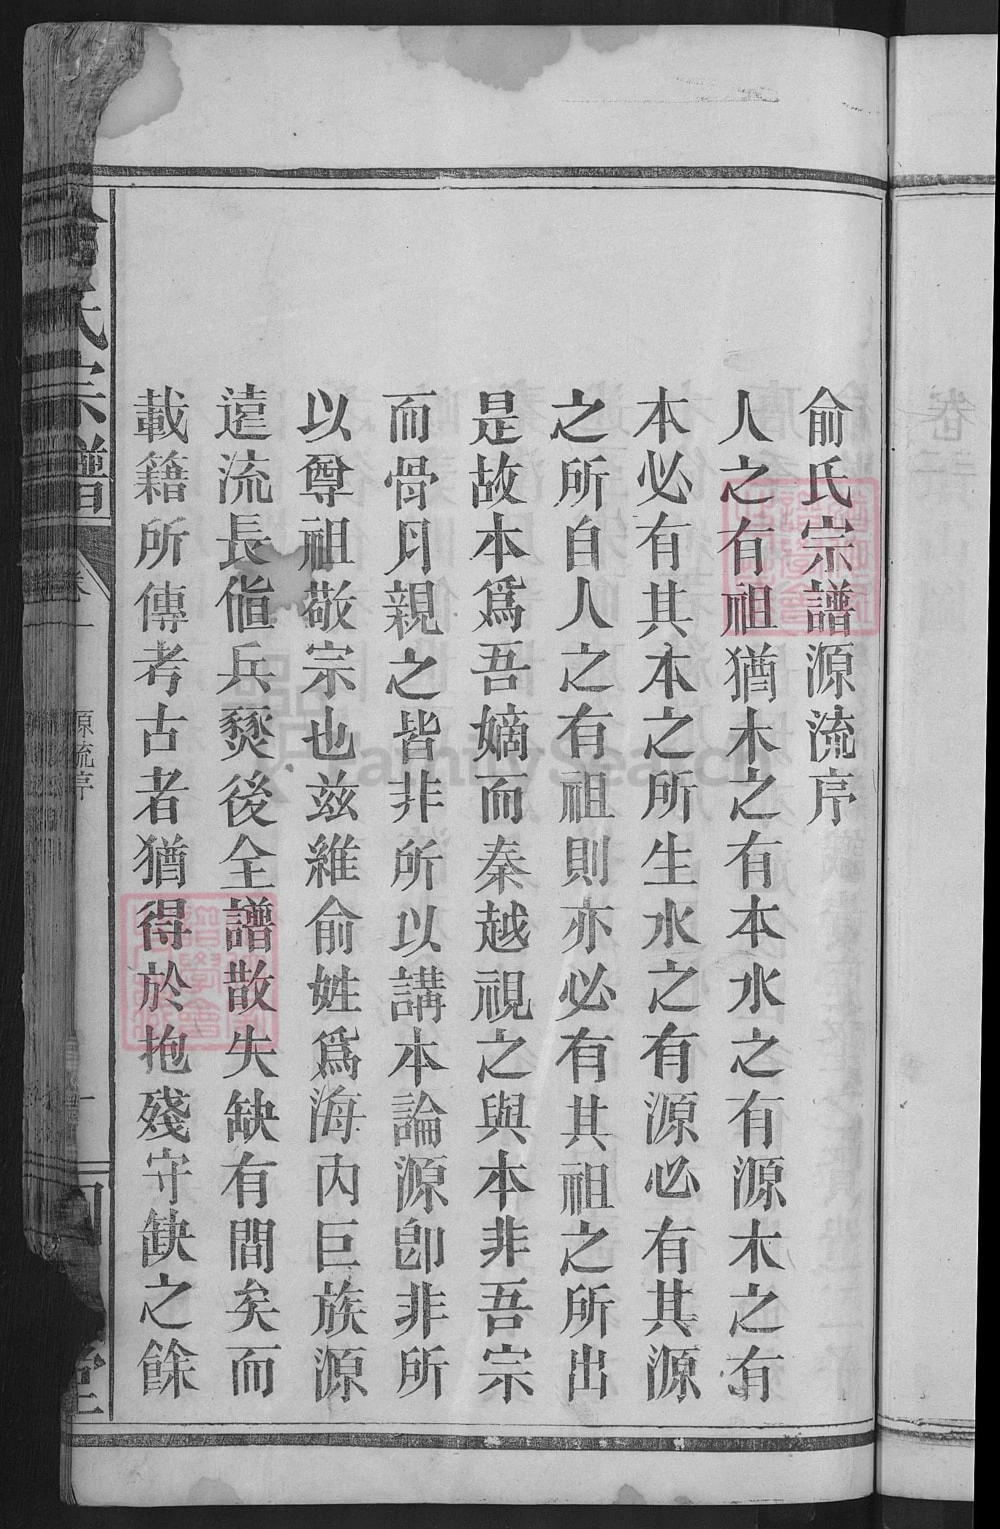 俞氏宗譜源流序
人之有祖猶木之有本水之有源木之有
本必有其本之所生水之有源必有其源
之所自人之有祖則亦必有其祖之所出
是故本爲吾嫡而秦越視之與本非吾宗
而骨月親之皆非所以講本論源卽非所
以尊祖敬宗也兹維俞姓爲海內巨族源
遠流長偹兵燹後全譜散失缺有間矣而
載籍所傳考古者猶得於抱殘守缺之餘
氏宗譜
卷一
源流序
堂
FamilySearch